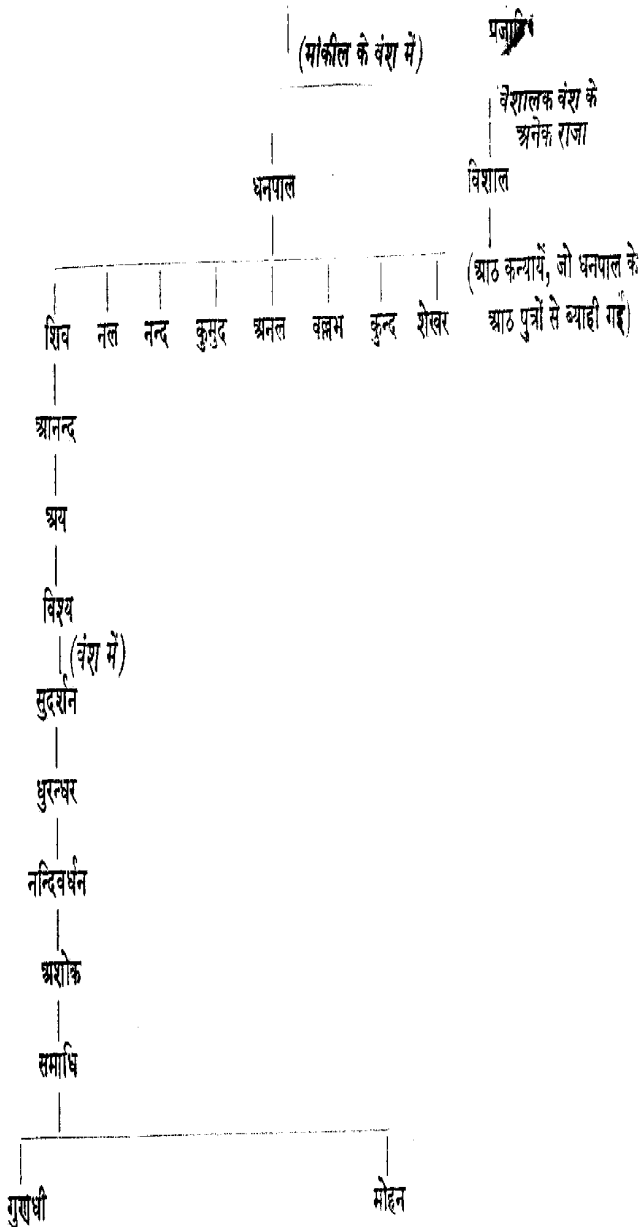 (मांकील के वंश में)
वैशालक वंश के
अनेक राजा
धनपाल
विशाल
(आठ कन्यायें, जो धनपाल के
आठ पुत्रों से ब्याही गईं)
शिव नल नन्द कुमुद अनल वल्लभ कुन्द शेखर
आनन्द
अय
विश्य
(वंश में)
सुदर्शन
धुरन्धर
नन्दिवर्धन
अशोक
समाधि
गुणधी मोहन